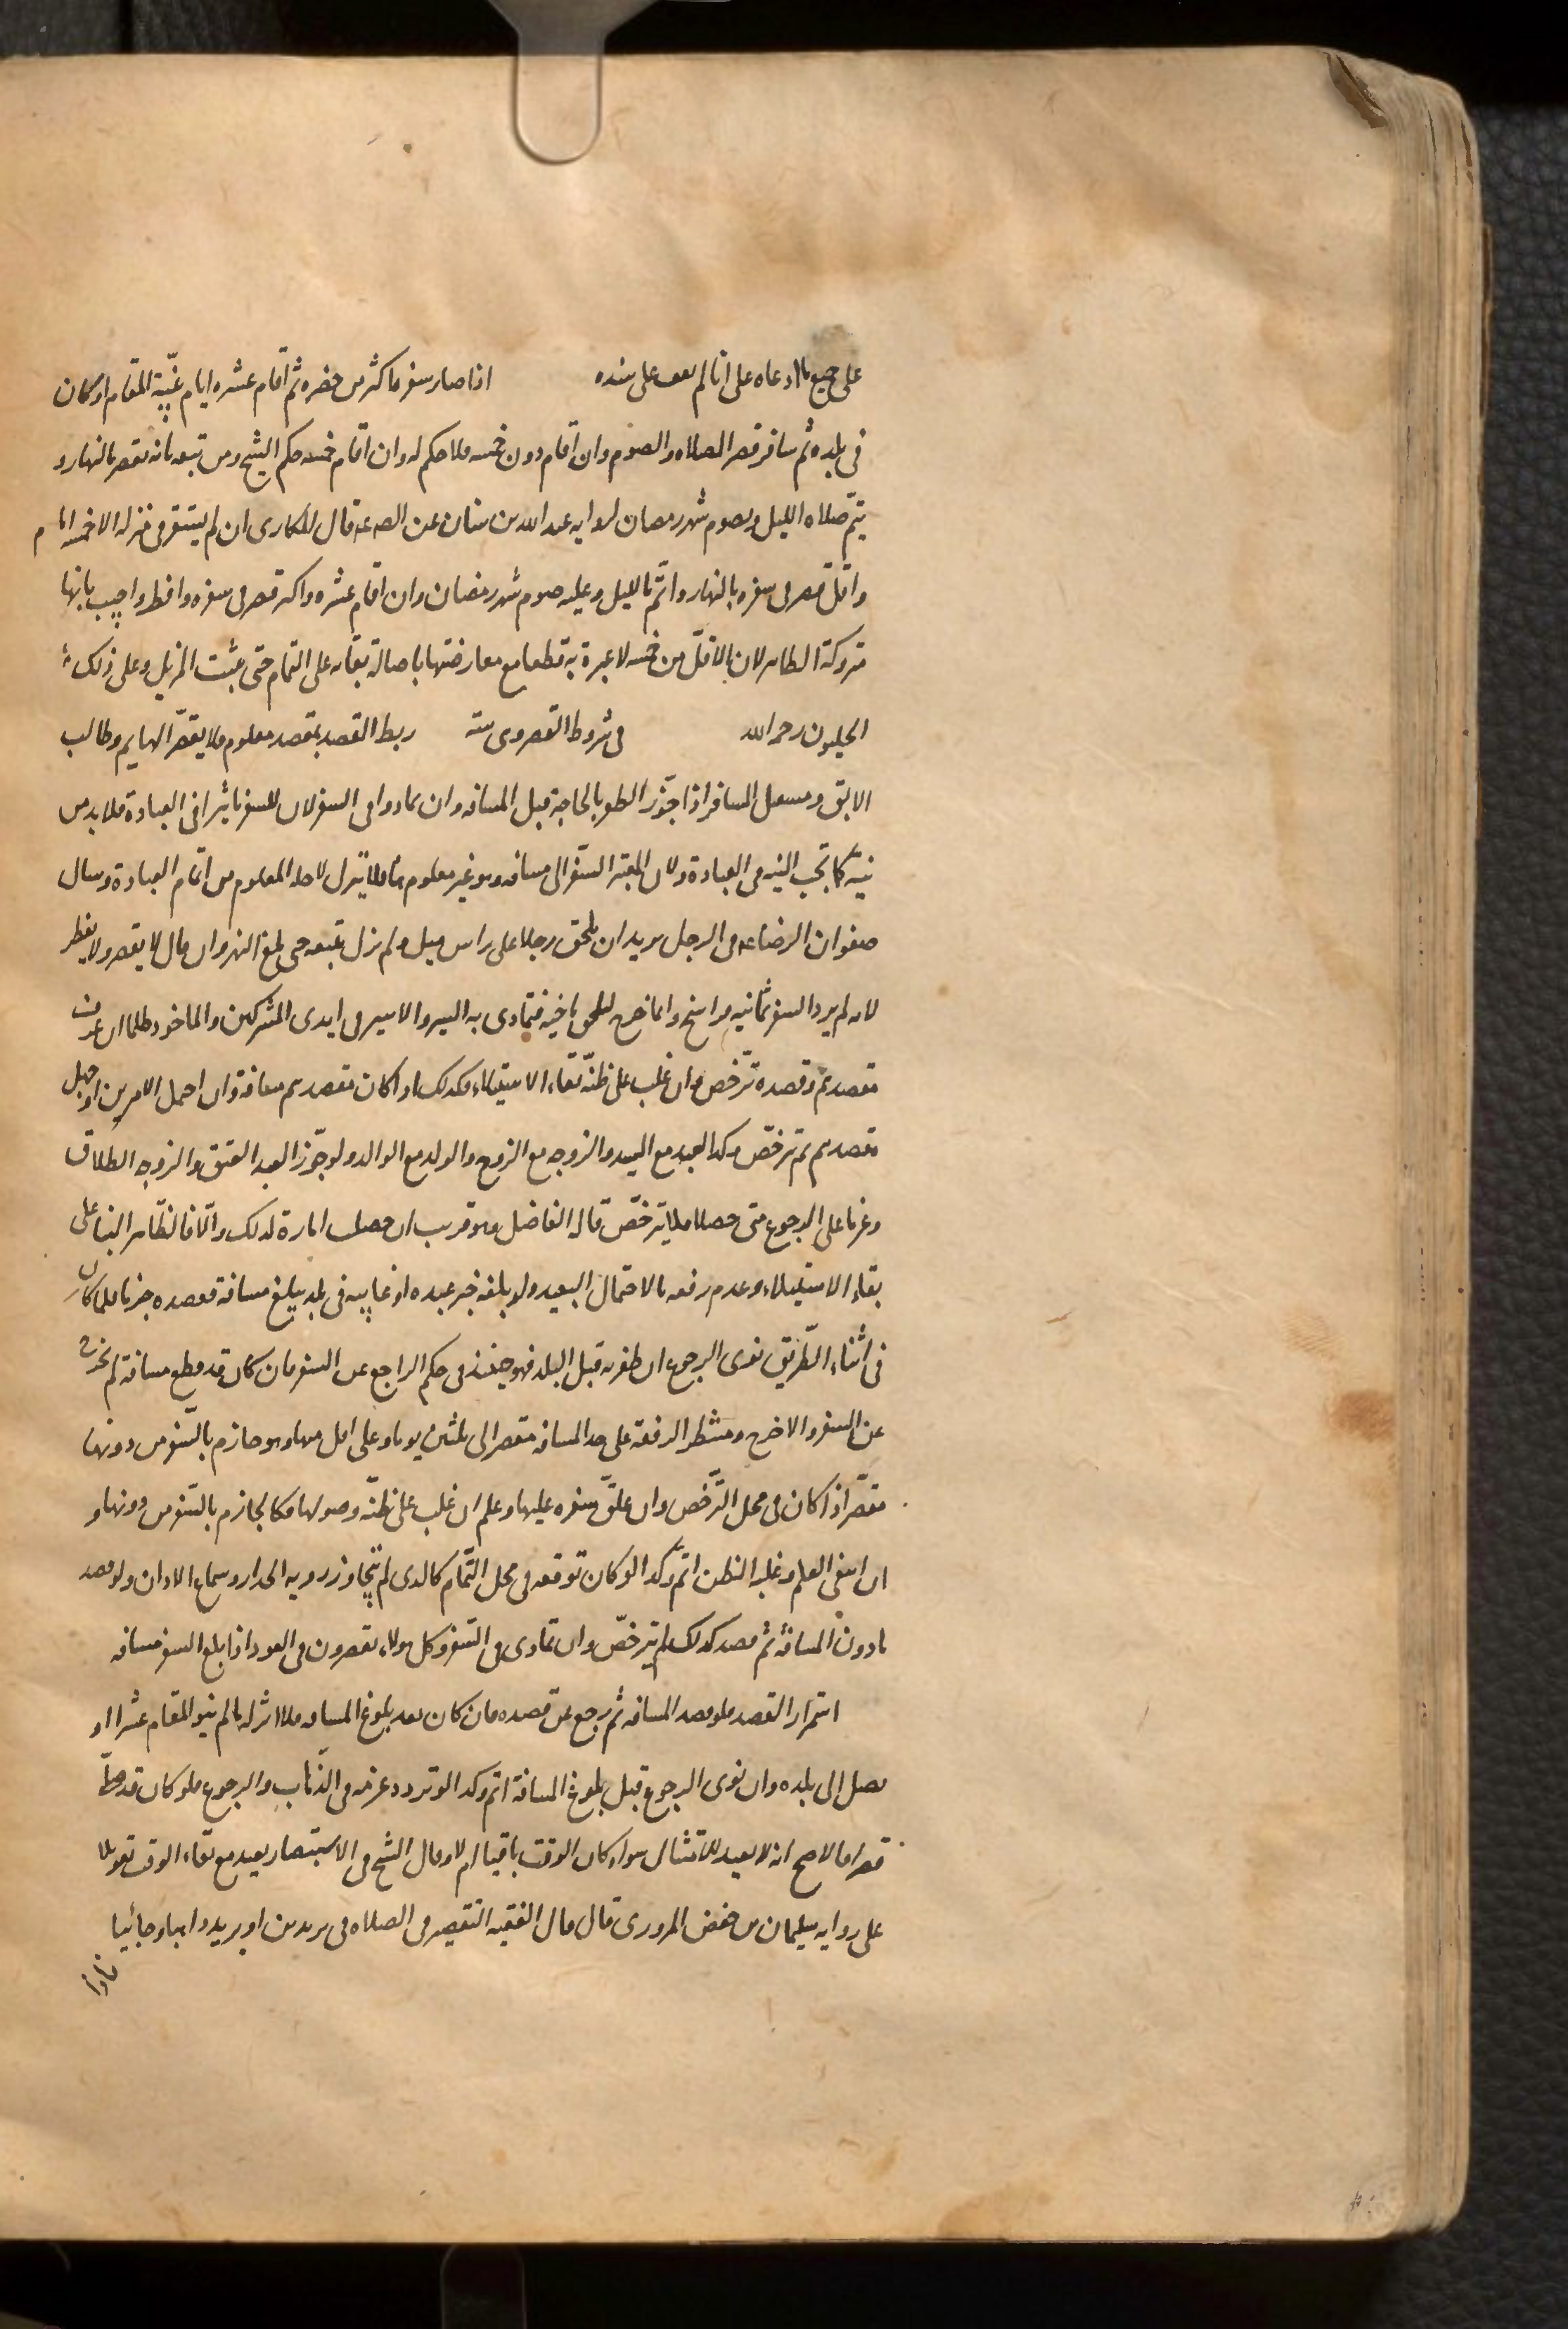 على جميع ما ادعاه على انا لم نقف على سنده اذا صار سفره اكثر من حضره ثم اقام عشره ايام بنية المقام او كان
فى بلده ثم سافر قصر الصلاه والصوم وان اقام دون خمسه فلا حكم له وان اقام خمسه حكم الشيخ ومن تبعه بانه يقصر بالنهار و
يتم صلاه الليل ويصوم شهر رمضان لروايه عبد الله بن سنان عن الصه عه قال المكارى ان لم يستقر فى منزله الا خمسه ايام
واقل قصر فى سفره بالنهار واتم بالليل وعليه صوم شهر رمضان وان اقام عشره واكثر قصر فى سفره وافطر واجيب بانها
متروكة الظاهر لان الاقل من خمسه لا عبرة به قطعا مع معارضتها باصالة بقائه على التمام حتى يثبت المزيل وعلى ذلك
الحليون رحمه الله فى شروط القصر وهى سته ربط القصد بمقصد معلوم فلا يقصر الهايم وطالب
الابق ومستقبل المسافر اذا جوز الظفر بالحاجة قبل المسافه وان تمادوا فى السفر لان للسفر تاثيرا فى العبادة فلا بد من
نيته كما تجب النيه فى العبادة ولان المعتبر السفر الى مسافه وهو غير معلوم هنا فلا يترك لاجله المعلوم من اتمام العبادة وسال
صفوان الرضا عه فى الرجل يريد ان يلحق رجلا على راس ميل فلم يزل يتبعه حتى بلغ النهروان قال لا يقصر ولا يفطر
لانه لم يرد السفر ثمانيه فراسخ وانما خرج ليلحق باخيه فتمادى به السير والاسير فى ايدى المشركين والماخوذ ظلما ان عرف
مقصدهم وقصده ترخص وان غلب على ظنه بقاء الاستيلاء فكذلك اذا كان مقصدهم مسافة وان احتمل الامرين او جهل
مقصدهم لم يترخص وكذا العبد مع السيد والزوجه مع الزوج والولد مع الوالد ولو جوز العبد العتق والزوجه الطلاق
وعزما على الرجوع متى حصلا فلا يترخص قاله الفاضل وهو قريب ان حصلت امارة لذلك والا فالظاهر البناء على
بقاء الاستيلاء وعدم رفعه بالاحتمال البعيد ولو بلغه خبر عبده او غايبه فى بلد يبلغ مسافة فقصده جزما فلما كان
فى اثناء الطريق نوى الرجوع ان ظفر به قبل البلد فهو حينئذ فى حكم الراجع عن السفر فان كان قد قطع مسافة لم يخرج
عن السفر والا خرج ومنتظر الرفقه على حد المسافه يقصر الى ثلثين يوما وعلى اقل منها وهو جازم بالسفر من دونها
مقصر اذا كان فى محل الترخص وان علق سفره عليها وعلم او غلب على ظنه وصولها فكالجازم بالسفر من دونها و
ان انتفى العلم وغلبه الظن اتم وكذا لو كان توقعه فى محل التمام كالذى لم يتجاوز رويه الجدار وسماع الاذان ولو قصد
ما دون المسافة ثم قصد كذلك لم يترخص وان تمادى فى السفر وكل هولاء يقصرون فى العود اذا بلغ السفر مسافه
استمرار القصد فلو قصد المسافه ثم رجع عن قصده فان كان بعد بلوغ المسافه فلا اثر له ما لم ينو المقام عشرا او
يصل الى بلده وان نوى الرجوع قبل بلوغ المسافة اتم وكذا لو تردد عزمه فى الذهاب والرجوع فلو كان قد صلى
قصرا فالاصح انه لا يعيد للامتثال سواء كان الوقت باقيا ام لا وقال الشيخ فى الاستبصار يعيد مع بقاء الوقت تعويلا
على روايه سليمان بن حفص المروزى قال قال الفقيه التقصير فى الصلاه فى بريدين او بريد ذاهبا وجائيا